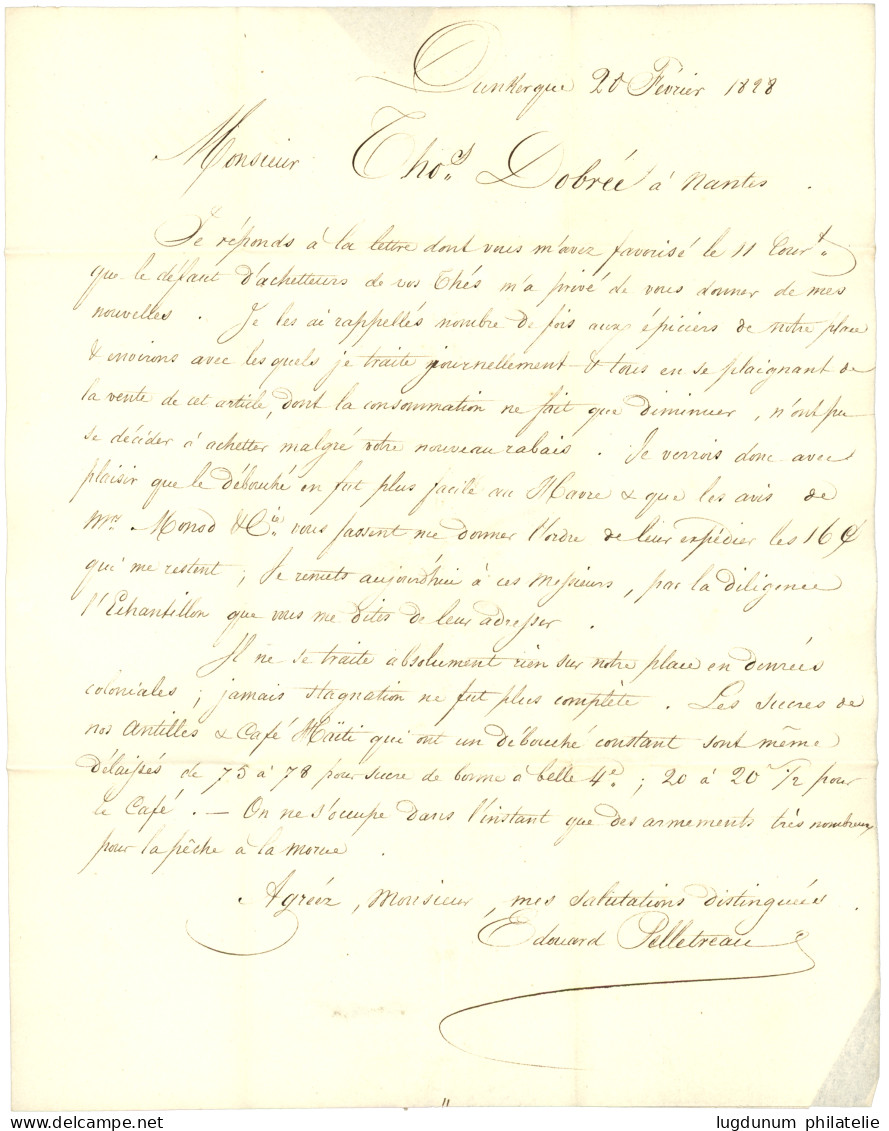 Dunkerque 20 Février 1828
Monsieur Tho.s Dobrée à Nantes .
Je réponds à la lettre dont vous m'avez favorisé le 11 Cour.t
que le défaut d'achetteurs de vos Thés m'a privé de vous donner de mes
nouvelles . Je les ai rappellés nombre de fois aux épiciers de notre place
& environs avec lesquels je traite journellement & tous en se plaignant de
la vente de cet article, dont la consommation ne fait que diminuer, n'ont pu
se décider à achetter malgré votre nouveau rabais . Je verrois donc avec
plaisir que le débouché en fut plus facile au Havre & que les avis de
Mrs Monod & Cie. vous fassent me donner l'ordre de leur expédier les 16
qui me restent ; Je remets aujourd'hui à ces Messieurs, par la diligence
l'Echantillon que vous me dites de leur adresser .
Il ne se traite absolument rien sur notre place en denrées
coloniales ; jamais stagnation ne fut plus complète . Les sucres de
nos Antilles & Café Haïti qui ont un débouché constant sont même
délaissés de 75 à 78 pour sucre de bonne à belle 4e. ; 20 à 20 1/2 pour
le Café . — On ne s'occupe dans l'instant que des armements très nombreux
pour la pêche à la morue .
Agréez, Monsieur, mes salutations distinguées .
Edouard Pelletreau
lugdunum philatelie